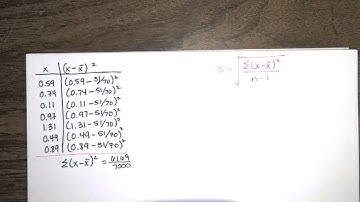 x | (x-x̄)²
0.59 | (0.59-51/70)²
0.74 | (0.74-51/70)²
0.11 | (0.11-51/70)²
0.97 | (0.97-51/70)²
1.31 | (1.31-51/70)²
0.49 | (0.49-51/70)²
0.89 | (0.89-51/70)²
Σ(x-x̄)² = 6169/7000
s = √(Σ(x-x̄)²/(n-1))